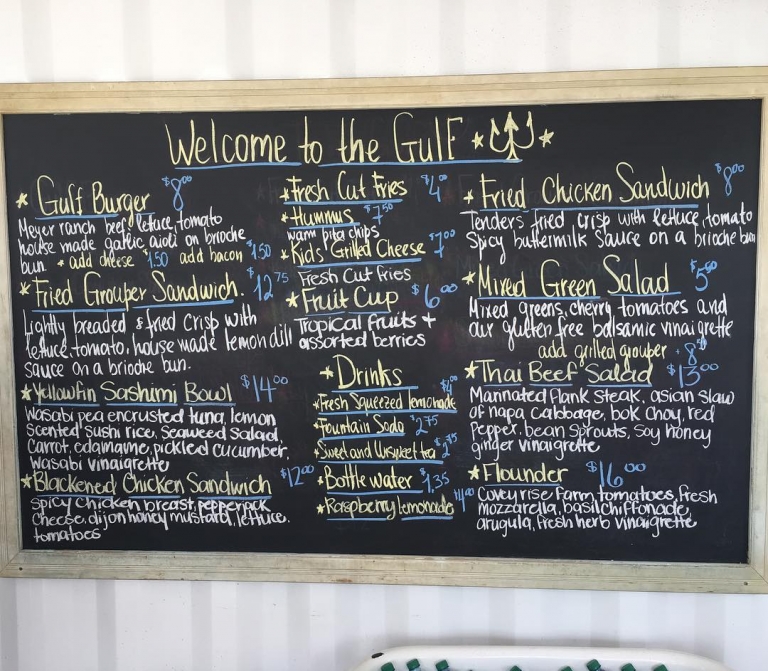 Welcome to the Gulf
Gulf Burger $8.00
Meyer ranch beef, lettuce, tomato
house made garlic aioli on brioche
bun. * add cheese $1.50 add bacon $1.50
Fried Grouper Sandwich. $12.75
Lightly breaded & fried crisp with
lettuce, tomato, house made lemon dill
sauce on a brioche bun.
Yellowfin Sashimi Bowl $14.00
Wasabi pea encrusted tuna, lemon
scented sushi rice, seaweed salad,
carrot, edamame, pickled cucumber,
wasabi vinaigrette
Blackened Chicken Sandwich $12.00
spicy chicken breast, pepperjack
cheese, dijon honey mustard, lettuce.
tomatoes
Fresh Cut Fries $4.00
Hummus $7.50
warm pita chips
Kid's Grilled Cheese $7.00
Fresh Cut Fries
Fruit Cup $6.00
Tropical fruits +
assorted berries
Drinks
Fresh Squeezed lemonade
Fountain Soda $2.75
Sweet and Unsweet tea
Bottle water $1.35
Raspberry lemonade
Fried Chicken Sandwich $8.00
Tenders fried crisp with lettuce, tomato
Spicy buttermilk sauce on a brioche bun
Mixed Green Salad
Mixed greens, cherry tomatoes and
our gluten free balsamic vinaigrette
add grilled grouper
Thai Beef Salad $13.00
Marinated flank steak, asian slaw
of napa cabbage, bok choy, red
pepper, bean sprouts, soy honey
ginger vinaigrette
Flounder $16.00
Covey rise Farm tomatoes, fresh
mozzarella, basil chiffonade,
arugula, fresh herb vinaigrette